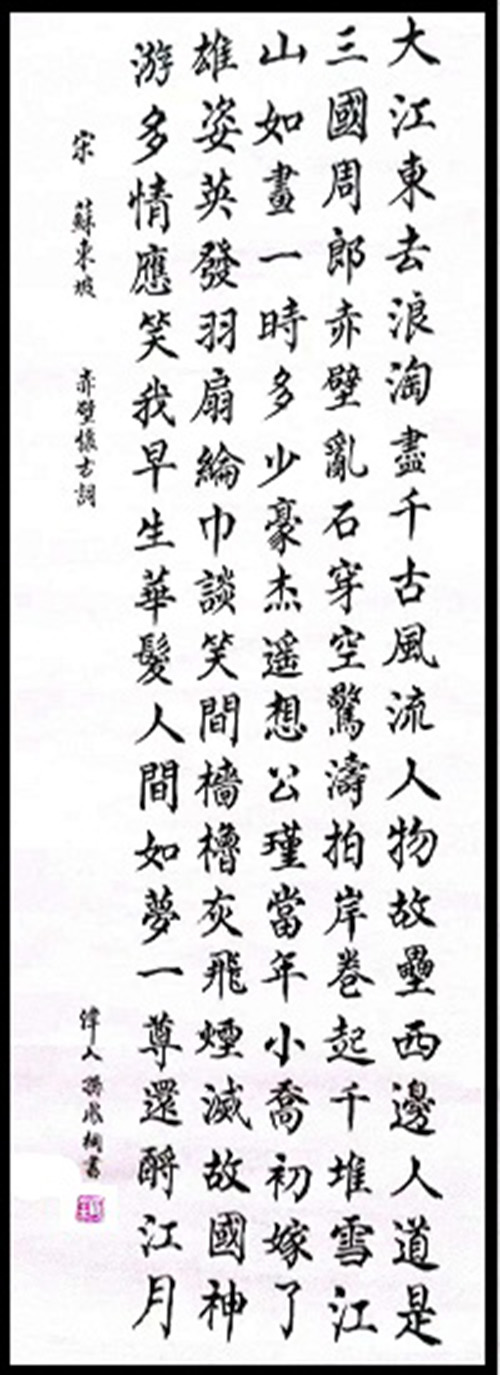 大江東去浪淘盡千古風流人物故壘西邊人道是
三國周郎赤壁亂石穿空驚濤拍岸卷起千堆雪江
山如畫一時多少豪杰遥想公瑾當年小喬初嫁了
雄姿英發羽扇綸巾談笑間檣櫓灰飛煙滅故國神
游多情應笑我早生華髮人間如夢一尊還酹江月
宋 蘇東坡 赤壁懷古詞